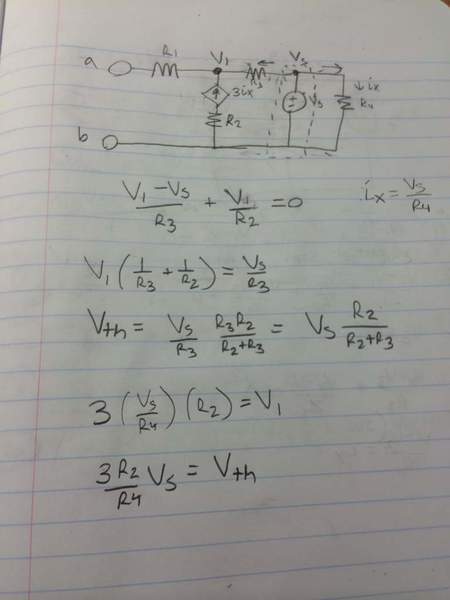 R1 V1 Vs
a R3 ↓ix
3ix Vs R4
R2
b
V1 - Vs / R3 + V1 / R2 = 0 ix = Vs / R4
V1 ( 1/R3 + 1/R2 ) = Vs / R3
Vth = Vs / R3 R3R2 / R2+R3 = Vs R2 / R2+R3
3 ( Vs / R4 ) ( R2 ) = V1
3R2 / R4 Vs = Vth